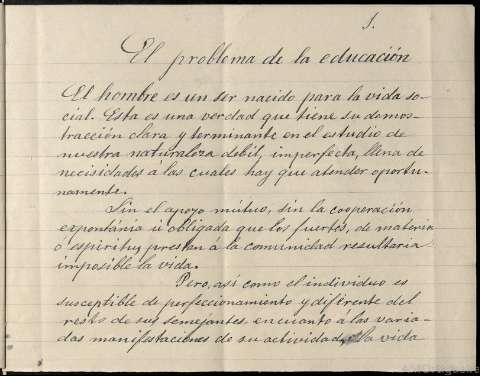 1.
El problema de la educación
El hombre es un ser nacido para la vida so-
cial. Esta es una verdad que tiene su demos-
tracción clara y terminante en el estudio de
nuestra naturaleza debil, imperfecta, llena de
necisidades á las cuales hay que atender oportu-
namente.
Sin el apoyo mútuo, sin la cooperación
expontánia ú obligada que los fuertes, de materia
ó espiritu, prestan á la comunidad resultaria
imposible la vida.
Pero, así como el individuo es
susceptible de perfeccionamiento y diferente del
resto de sus semejantes en cuanto á las varia-
das manifestaciones de su actividad, la vida